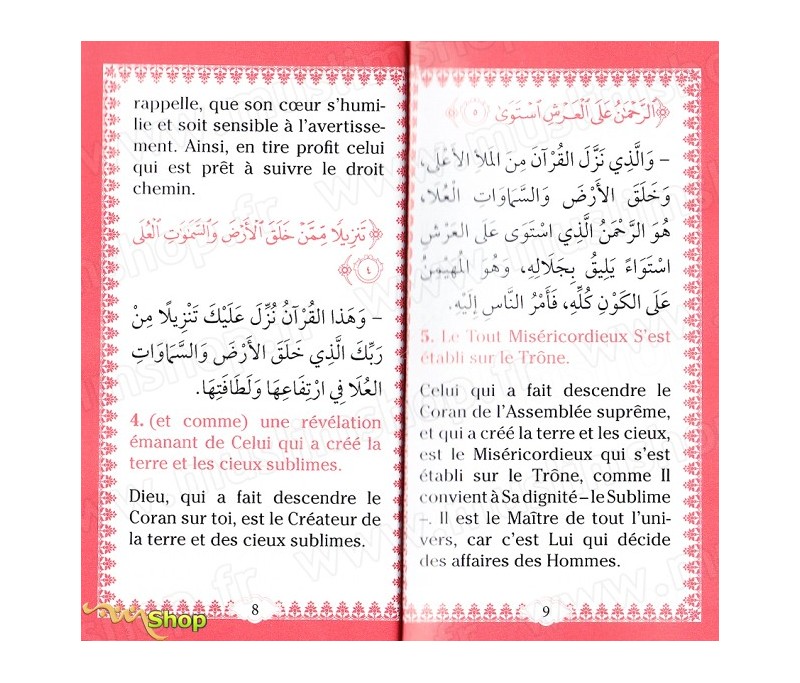 rappelle, que son cœur s’humi-
lie et soit sensible à l’avertisse-
ment. Ainsi, en tire profit celui
qui est prêt à suivre le droit
chemin.
﴿ تَنزِيلًا مِّمَّنْ خَلَقَ ٱلْأَرْضَ وَٱلسَّمَٰوَٰتِ ٱلْعُلَى
٤ ﴾
– وَهَذَا القُرْآنُ نُزِّلَ عَلَيْكَ تَنْزِيلًا مِنْ
رَبِّكَ الَّذِي خَلَقَ الأَرْضَ وَالسَّمَاوَاتِ
العُلَا فِي ارْتِفَاعِهَا وَلَطَافَتِهَا.
4. (et comme) une révélation
émanant de Celui qui a créé la
terre et les cieux sublimes.
Dieu, qui a fait descendre le
Coran sur toi, est le Créateur de
la terre et des cieux sublimes.
8
﴿ ٱلرَّحْمَٰنُ عَلَى ٱلْعَرْشِ ٱسْتَوَىٰ ٥ ﴾
– وَالَّذِي نَزَّلَ القُرْآنَ مِنَ المَلَأِ الأَعْلَى،
وَخَلَقَ الأَرْضَ وَالسَّمَاوَاتِ الْعُلَا،
هُوَ الرَّحْمَنُ الَّذِي اسْتَوَى عَلَى العَرْشِ
اسْتِوَاءً يَلِيقُ بِجَلَالِهِ، وَهُوَ المُهَيْمِنُ
عَلَى الكَوْنِ كُلِّهِ، فَأَمْرُ النَّاسِ إِلَيْهِ.
5. Le Tout Miséricordieux S’est
établi sur le Trône.
Celui qui a fait descendre le
Coran de l’Assemblée suprême,
et qui a créé la terre et les cieux,
est le Miséricordieux qui s’est
établi sur le Trône, comme Il
convient à Sa dignité – le Sublime
–. Il est le Maître de tout l’uni-
vers, car c’est Lui qui décide
des affaires des Hommes.
9
Shop